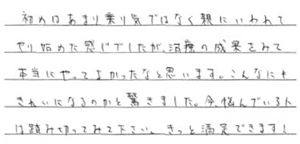 初めはあまり乗り気ではなく親にいわれて
やり始めた感じでしたが、治療の成果をみて
本当にやってよかったなと思います。こんなにも
きれいになるのかと驚きました。今悩んでいる人
は踏み切ってみて下さい。きっと満足できます!